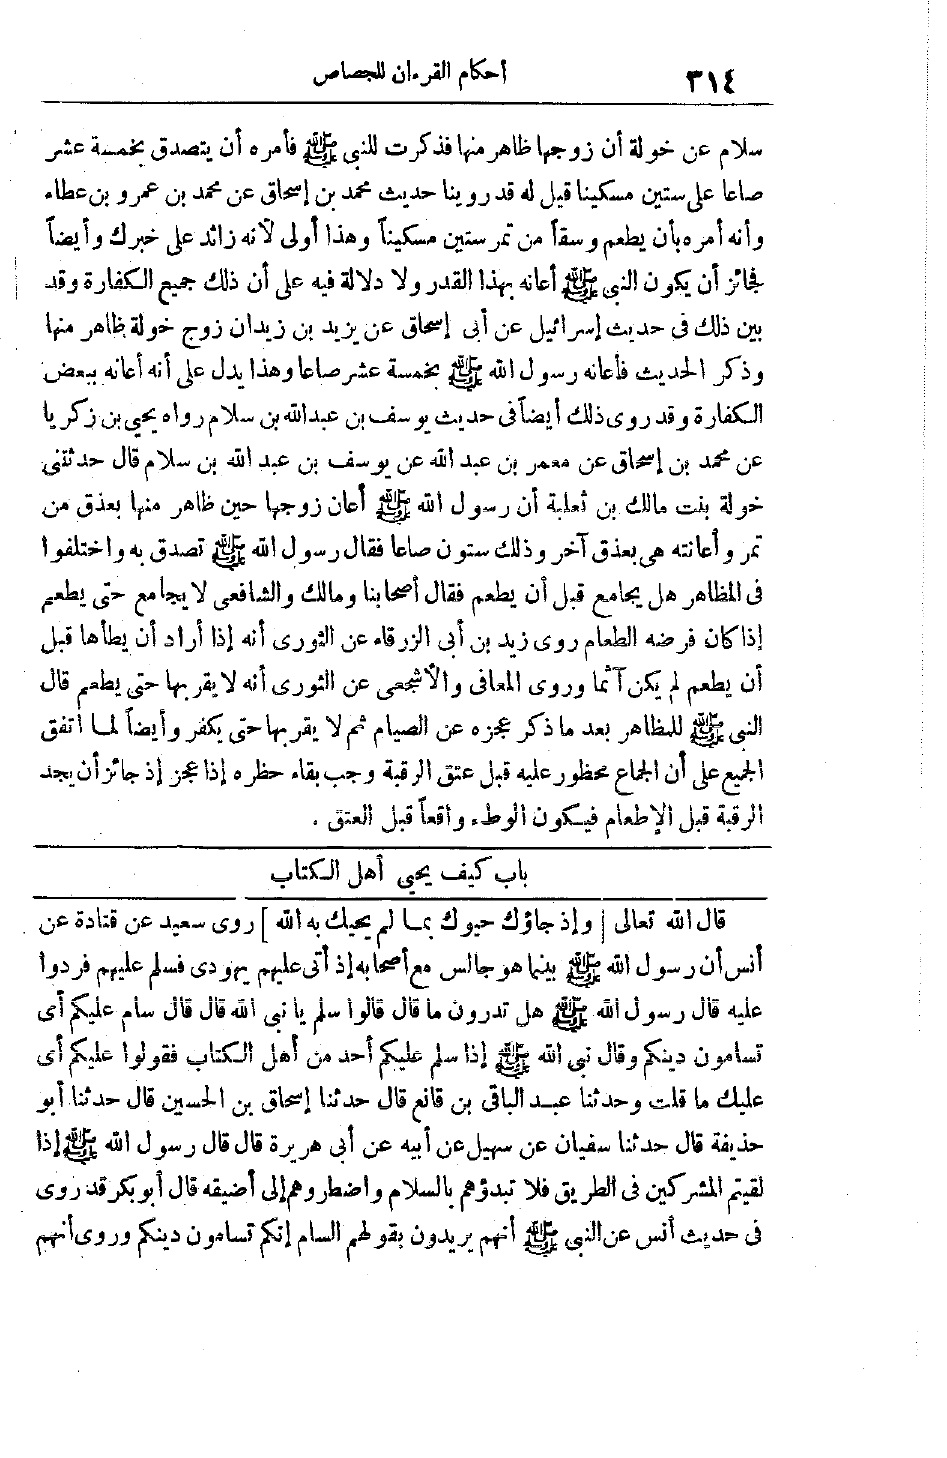 ٣١٤
أحكام القرءان للجصاص
سلام عن خولة أن زوجها ظاهر منها فذكرت للنبى ﷺ فأمره أن يتصدق بخمسة عشر
صاعا على ستين مسكينا قيل له قد روينا حديث محمد بن إسحاق عن محمد بن عمرو بن عطاء
وأنه أمره بأن يطعم وسقاً من تمر ستين مسكيناً وهذا أولى لأنه زائد على خبرك وأيضاً
فجائز أن يكون النبى ﷺ أعانه بهذا القدر ولا دلالة فيه على أن ذلك جميع الكفارة وقد
بين ذلك فى حديث إسرائيل عن أبى إسحاق عن يزيد بن زيدان زوج خولة ظاهر منها
وذكر الحديث فأعانه رسول الله ﷺ بخمسة عشر صاعا وهذا يدل على أنه أعانه ببعض
الكفارة وقد روى ذلك أيضاً فى حديث يوسف بن عبدالله بن سلام رواه يحيى بن زكريا
عن محمد بن إسحاق عن معمر بن عبد الله عن يوسف بن عبد الله بن سلام قال حدثتنى
خولة بنت مالك بن ثعلبة أن رسول الله ﷺ أعان زوجها حين ظاهر منها بعذق من
تمر وأعانته هى بعذق آخر وذلك ستون صاعا فقال رسول الله ﷺ تصدق به واختلفوا
فى المظاهر هل يجامع قبل أن يطعم فقال أصحابنا ومالك والشافعى لا يجامع حتى يطعم
إذا كان فرضه الطعام روى زيد بن أبى الزرقاء عن الثورى أنه إذا أراد أن يطأها قبل
أن يطعم لم يكن آثما وروى المعافى والأشجعى عن الثورى أنه لا يقربها حتى يطعم قال
النبى ﷺ للمظاهر بعد ما ذكر عجزه عن الصيام ثم لا يقربها حتى يكفر وأيضاً لما اتفق
الجميع على أن الجماع محظور عليه قبل عتق الرقبة وجب بقاء حظره إذا عجز إذ جائز أن يجد
الرقبة قبل الإطعام فيكون الوطء واقعاً قبل العتق .
باب كيف يحيى أهل الكتاب
قال الله تعالى [ وإذ جاؤك حيوك بما لم يحيك به الله ] روى سعيد عن قتادة عن
أنس أن رسول الله ﷺ بينما هو جالس مع أصحابه إذ أتى عليهم يهودى فسلم عليهم فردوا
عليه قال رسول الله ﷺ هل تدرون ما قال قالوا سلم يا نبى الله قال قال سام عليكم أى
تسامون دينكم وقال نبى الله ﷺ إذا سلم عليكم أحد من أهل الكتاب فقولوا عليكم أى
عليك ما قلت وحدثنا عبد الباقى بن قانع قال حدثنا إسحاق بن الحسين قال حدثنا أبو
حذيفة قال حدثنا سفيان عن سهيل عن أبيه عن أبى هريرة قال قال رسول الله ﷺ إذا
لقيتم المشركين فى الطريق فلا تبدؤهم بالسلام واضطروهم إلى أضيقه قال أبو بكر قد روى
فى حديث أنس عن النبى ﷺ أنهم يريدون بقولهم السام إنكم تسامون دينكم وروى أنهم